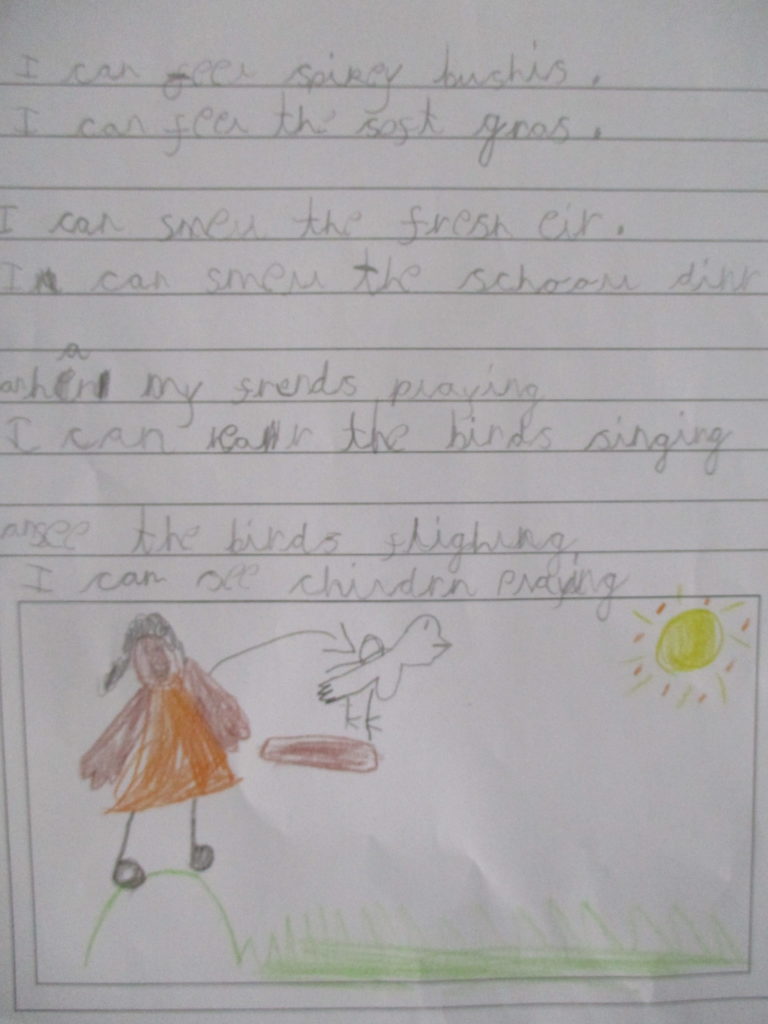 I can feel spikey bushis.
I can feel the soft gras.
I can smell the fresh eir.
I can smell the school dinr
my frends playing
I can the birds singing
see the birds flighing
I can see childrn playing